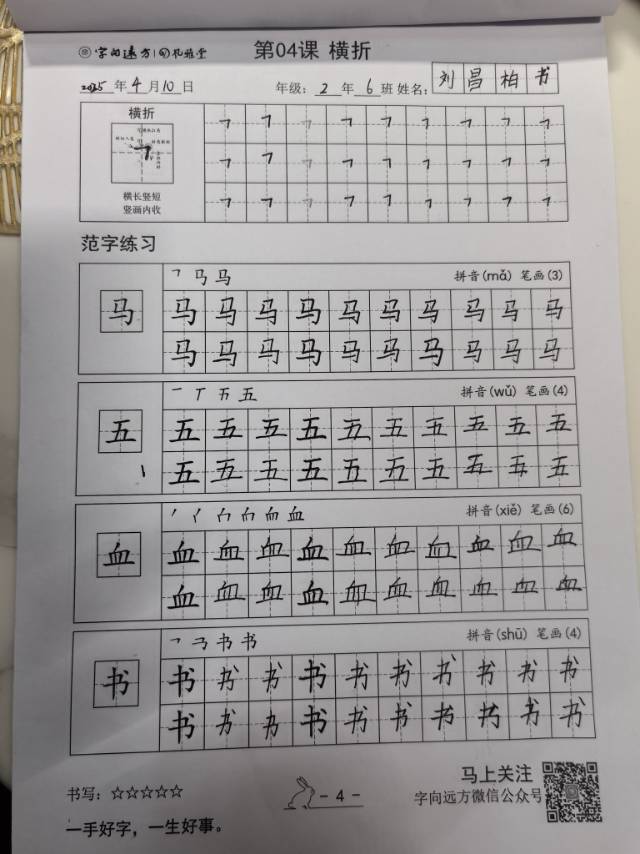 字向远方 孔雅堂 第04课 横折
2025年4月10日 年级：2年6班 姓名：刘昌柏书
横折
横长竖短
竖画内收
㇕ ㇕ ㇕ ㇕ ㇕ ㇕ ㇕ ㇕ ㇕
㇕ ㇕ ㇕ ㇕ ㇕ ㇕ ㇕ ㇕ ㇕
㇕ ㇕ ㇕ ㇕ ㇕ ㇕ ㇕ ㇕ ㇕
范字练习
马
拼音(mǎ) 笔画(3)
马 马 马 马 马 马 马 马 马 马
马 马 马 马 马 马 马 马 马 马
五
拼音(wǔ) 笔画(4)
五 五 五 五 五 五 五 五 五 五
五 五 五 五 五 五 五 五 五 五
血
拼音(xiě) 笔画(6)
血 血 血 血 血 血 血 血 血 血
血 血 血 血 血 血 血 血 血 血
书
拼音(shū) 笔画(4)
书 书 书 书 书 书 书 书 书 书
书 书 书 书 书 书 书 书 书 书
书写：☆☆☆☆☆
一手好字，一生好事。
- 4 -
马上关注
字向远方微信公众号